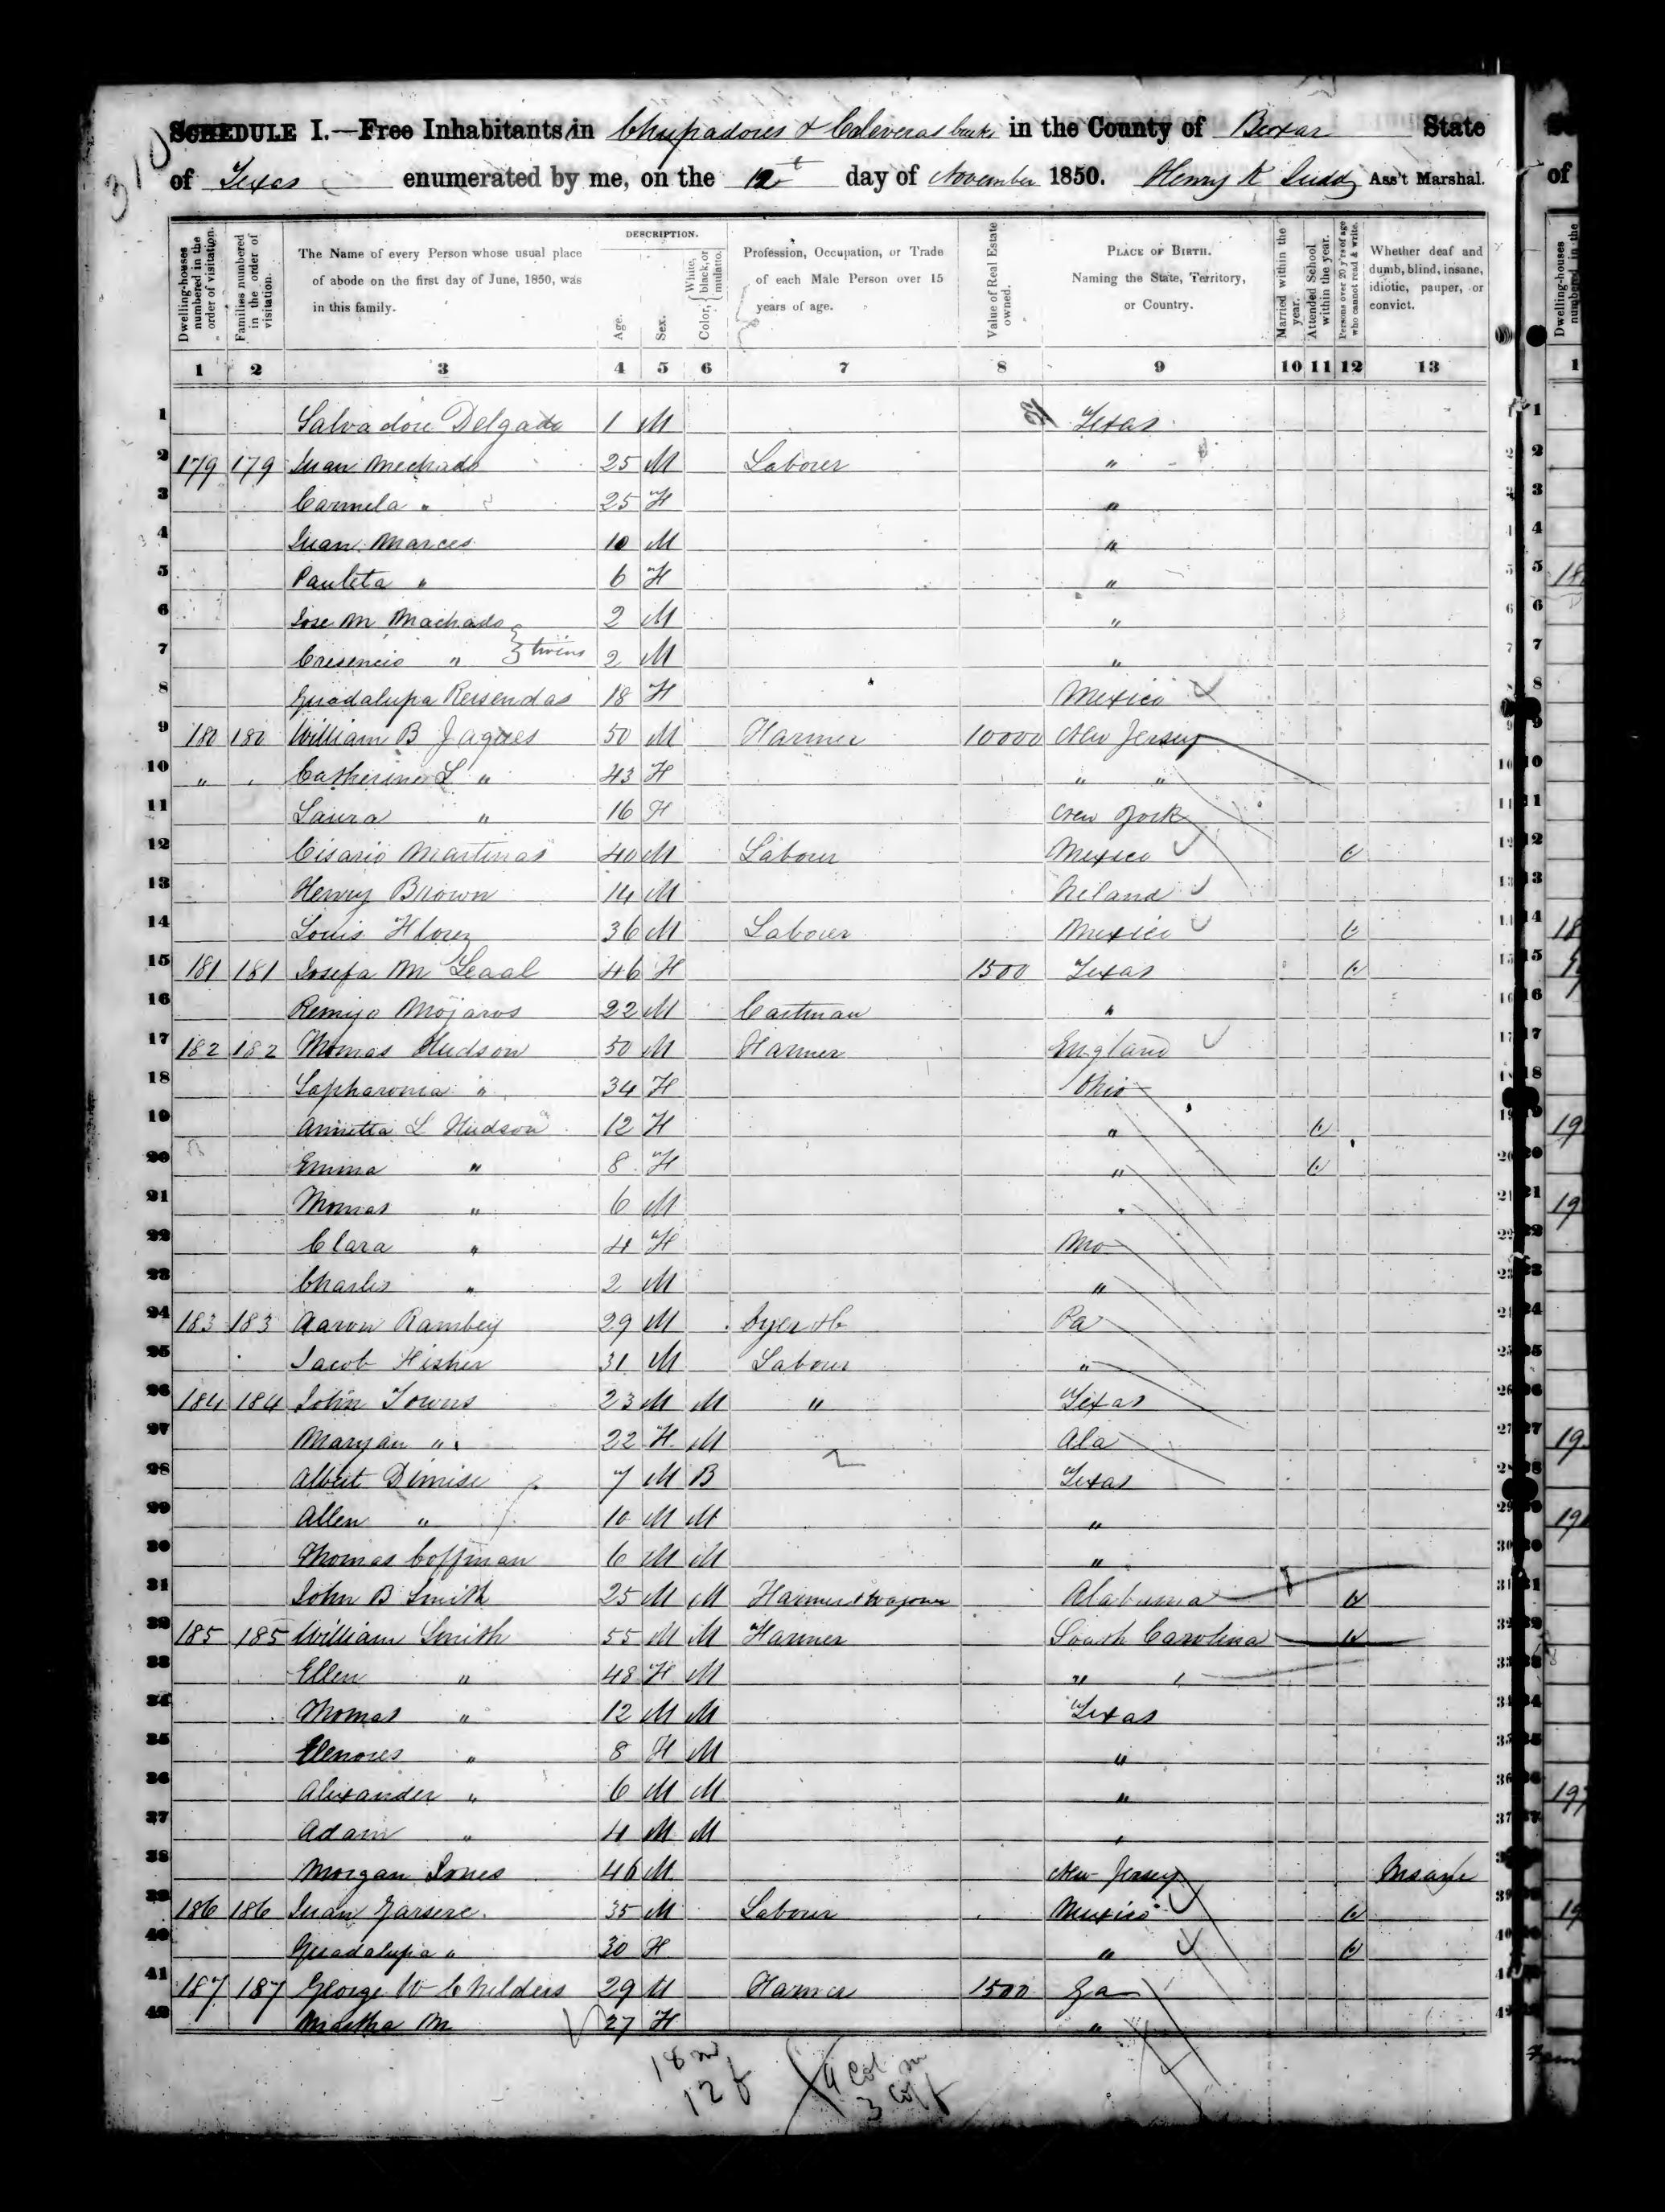 310
SCHEDULE I.—Free Inhabitants in Chupadores & Caleveras creeks in the County of Bexar State
of Texas enumerated by me, on the 12t day of November 1850. Henry K Judd Ass't Marshal.
Dwelling-houses numbered in the order of visitation.
Families numbered in the order of visitation.
The Name of every Person whose usual place of abode on the first day of June, 1850, was in this family.
DESCRIPTION.
Age.
Sex.
Color, { White, black, or mulatto.
Profession, Occupation, or Trade of each Male Person over 15 years of age.
Value of Real Estate owned.
PLACE OF BIRTH. Naming the State, Territory, or Country.
Married within the year.
Attended School within the year.
Persons over 20 y'rs of age who cannot read & write.
Whether deaf and dumb, blind, insane, idiotic, pauper, or convict.
1 2 3 4 5 6 7 8 9 10 11 12 13
1 Salvadore Delgado 1 M Texas 1
2 179 179 Juan Mechado 25 M Labourer " 2
3 Carmela " 25 F " 3
4 Juan Marces 10 M " 4
5 Pauleta " 6 F " 5
6 Jose M Machado 2 M " 6
7 Cresencio " } twins 2 M " 7
8 Guadalupa Resendas 18 F Mexico 8
9 180 180 William B Jaques 50 M Farmer 10000 New Jersey 9
10 " " Catherine L " 43 F " " 10
11 Laura " 16 F New York 11
12 Cisario Martinas 40 M Labour Mexico 12
13 Henry Brown 14 M Ireland 13
14 Louis Florez 36 M Labourer Mexico 14
15 181 181 Josefa M Leaal 46 F 1500 Texas 15
16 Remijo Mojaros 22 M Cartman " 16
17 182 182 Thomas Hudson 50 M Farmer England 17
18 Sapharonia " 34 F Ohio 18
19 Annetta L Hudson 12 F " 19
20 Emma " 8 F " 20
21 Thomas " 6 M " 21
22 Clara " 4 F Mo 22
23 Charles " 2 M " 23
24 183 183 Aaron Rambey 29 M Pa 24
25 Jacob Fisher 31 M Labour " 25
26 184 184 John Towns 23 M M " Texas 26
27 Maryan " 22 F M Ala 27
28 Albert Dimise 7 M B Texas 28
29 Allen " 10 M M " 29
30 Thomas Coffman 6 M M " 30
31 John B Smith 25 M M Farmer & Wagoner Alabama 31
32 185 185 William Smith 55 M M Farmer South Carolina 32
33 Ellen " 48 F M " " 33
34 Thomas " 12 M M Texas 34
35 Elenores " 8 F M " 35
36 Alexander " 6 M M " 36
37 Adam " 4 M M " 37
38 Morgan Jones 46 M New Jersey Insane 38
39 186 186 Juan Garsere 35 M Labour Mexico 39
40 Guadalupa " 30 F " 40
41 187 187 George W Childers 29 M Farmer 1500 Ga 41
42 Martha M 27 F " 42
18 m
12 f
9 Col m
3 Col f